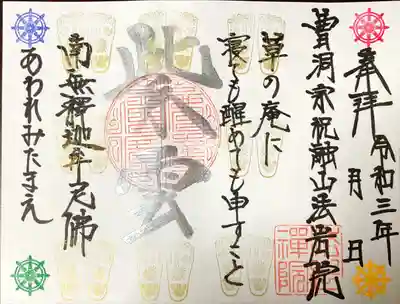 奉拝 令和三年 月 日
曹洞宗祝融山法岩院
草の庵に
寝ても醒めても申すこと
南無釈迦牟尼佛
あわれみたまえ